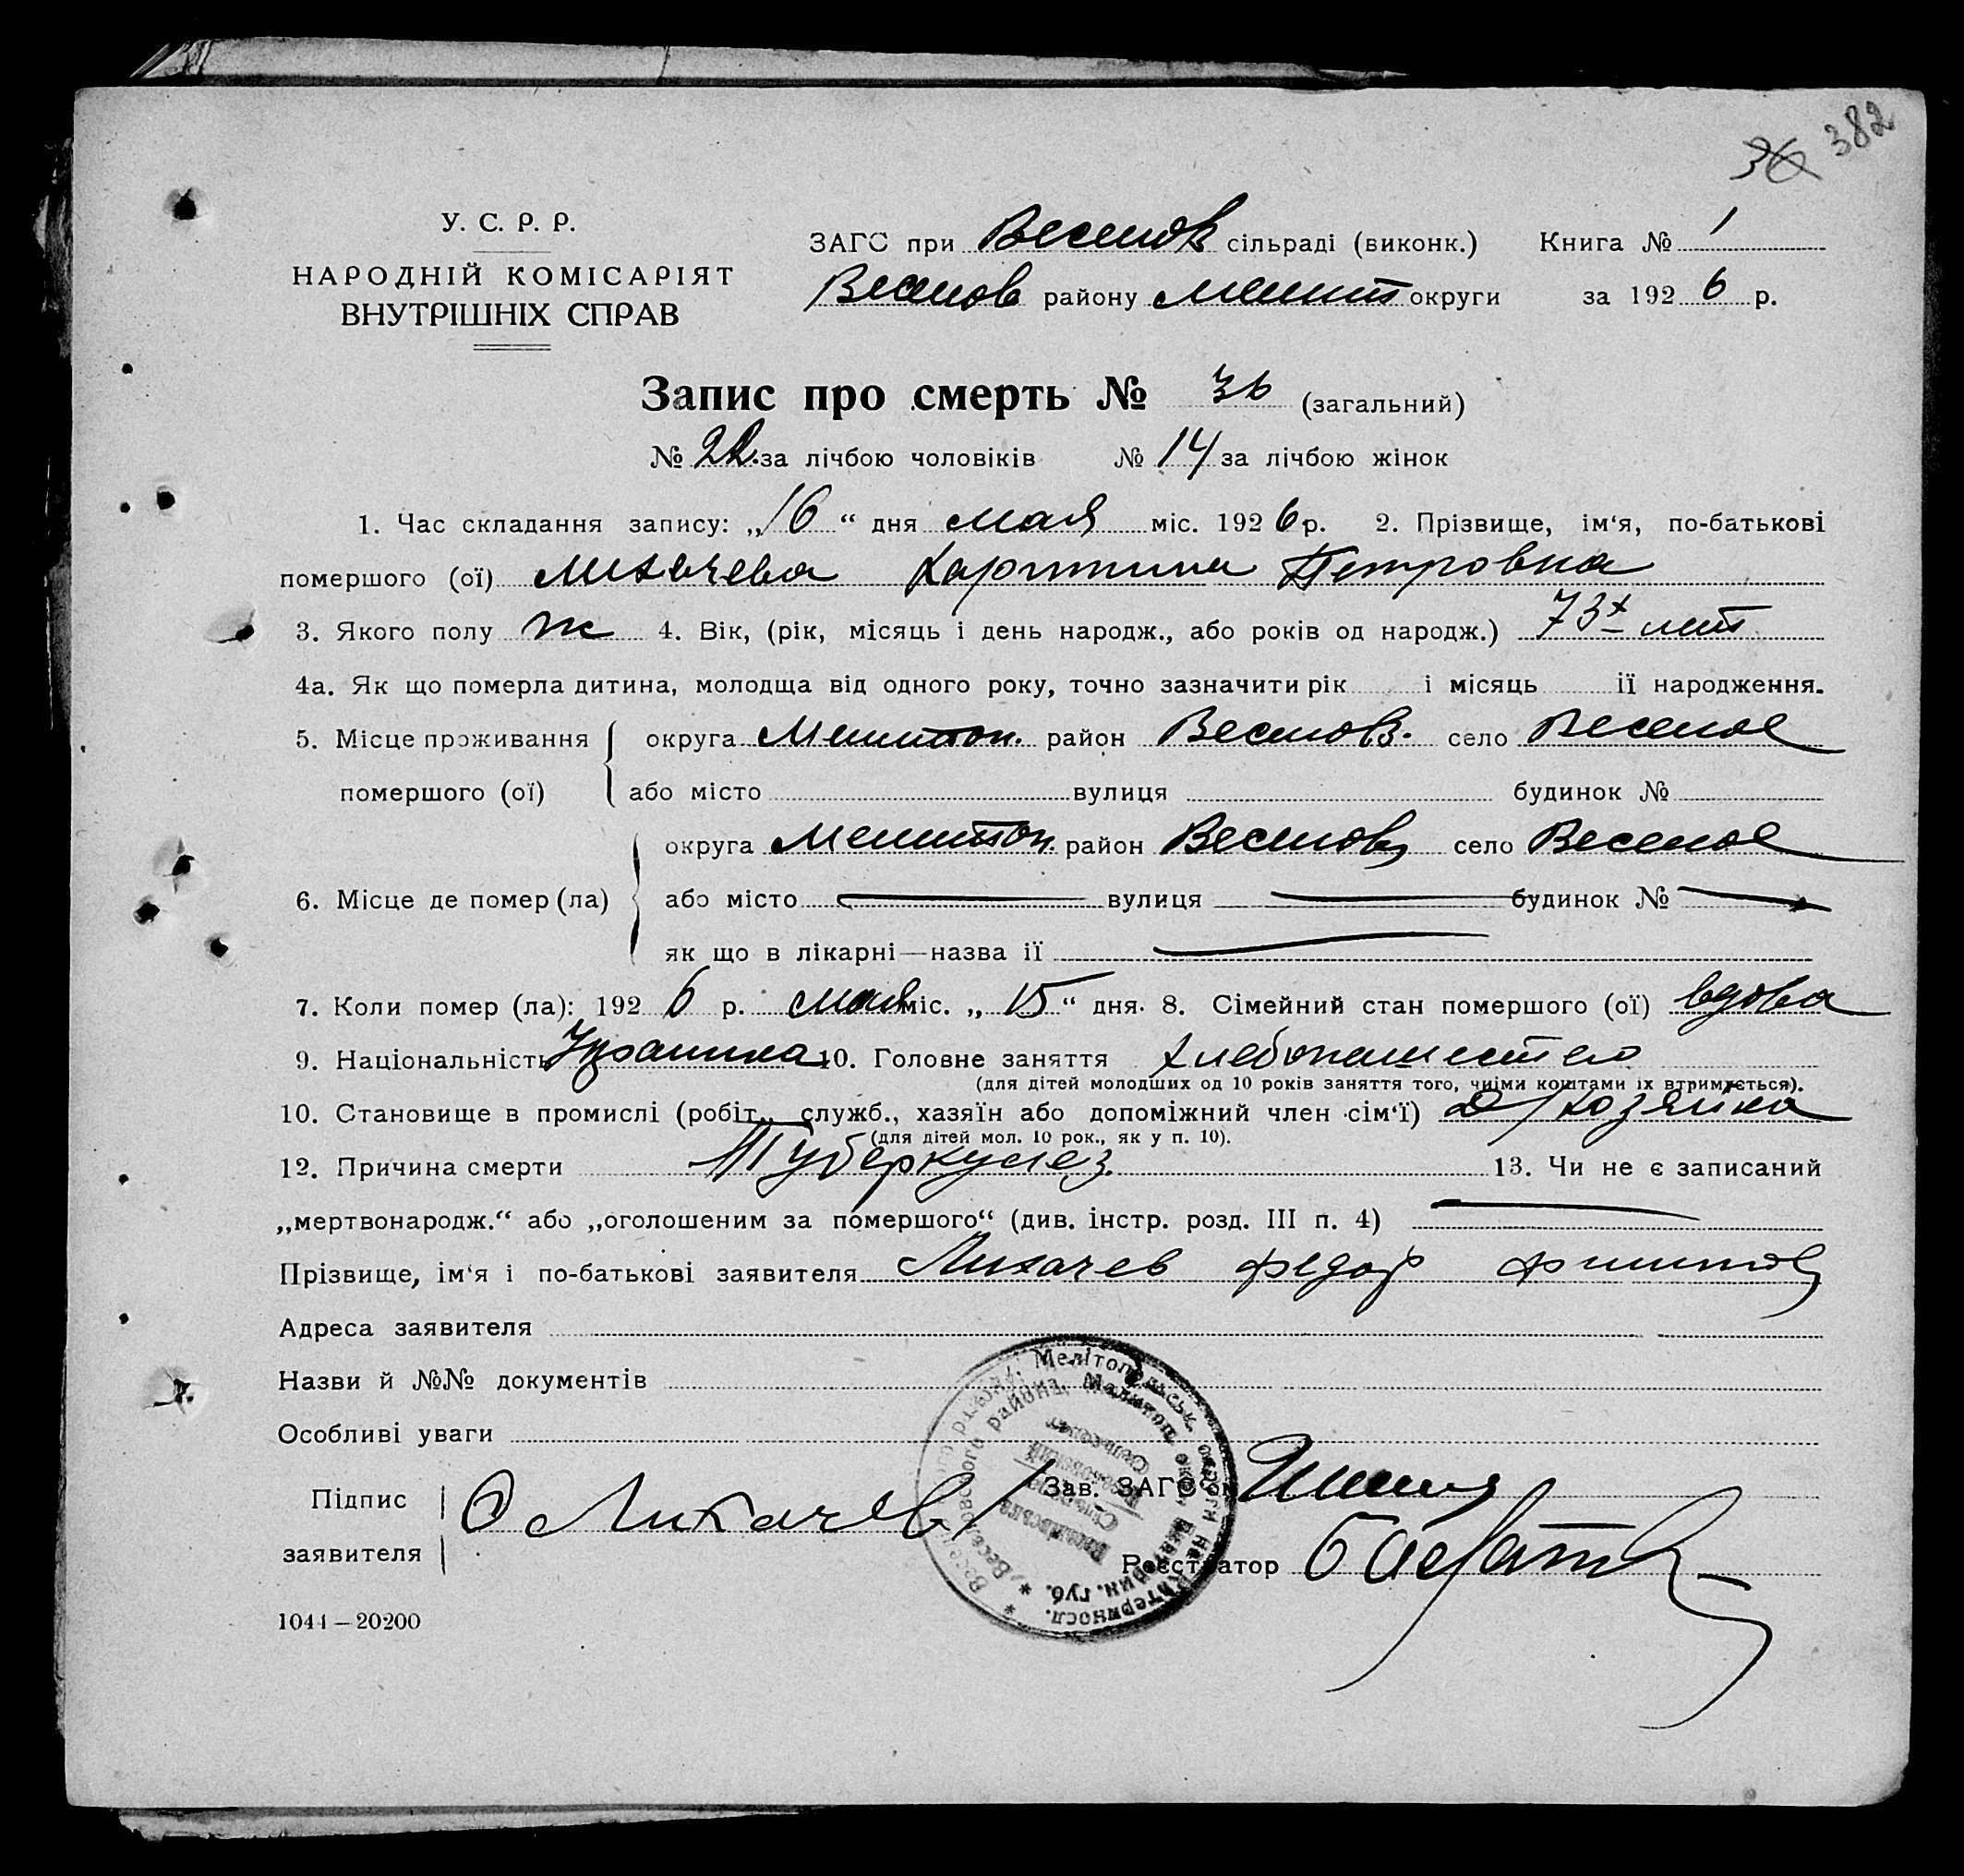 36 382
У. С. Р. Р.
НАРОДНІЙ КОМІСАРІЯТ
ВНУТРІШНІХ СПРАВ
ЗАГС при Веселов сільраді (виконк.) Книга № 1
Веселов району Мелит округи за 1926 р.
Запис про смерть № 36 (загальний)
№ 22 за лічбою чоловіків № 14 за лічбою жінок
1. Час складання запису: „16“ дня мая міс. 1926 р. 2. Прізвище, ім‘я, по-батькові
помершого (ої) Лихачева Харитина Петровна
3. Якого полу ж 4. Вік, (рік, місяць і день народж., або років од народж.) 73х лет
4а. Як що померла дитина, молодща від одного року, точно зазначити рік і місяць її народження.
5. Місце проживання помершого (ої) округа Мелитоп. район Веселов. село Веселое
або місто вулиця будинок №
6. Місце де помер (ла) округа Мелитоп. район Веселов село Веселое
або місто вулиця будинок №
як що в лікарні—назва її
7. Коли помер (ла): 1926 р. мая міс. „15“ дня. 8. Сімейний стан помершого (ої) вдова
9. Національність Украинка 10. Головне заняття хлебопашество
(для дітей молодших од 10 років заняття того, чиїми коштами їх втримується).
10. Становище в промислі (робіт., служб., хазяїн або допоміжний член сім‘ї) д/хозяйка
(для дітей мол. 10 рок., як у п. 10).
12. Причина смерти Туберкулез. 13. Чи не є записаний
„мертвонародж.“ або „оголошеним за помершого“ (див. інстр. розд. III п. 4)
Прізвище, ім‘я і по-батькові заявителя Лихачев Федор Филипов
Адреса заявителя
Назви й №№ документів
Особливі уваги
Підпис заявителя Лихачев
Зав. ЗАГС‘ом
Реєстратор
1044—20200